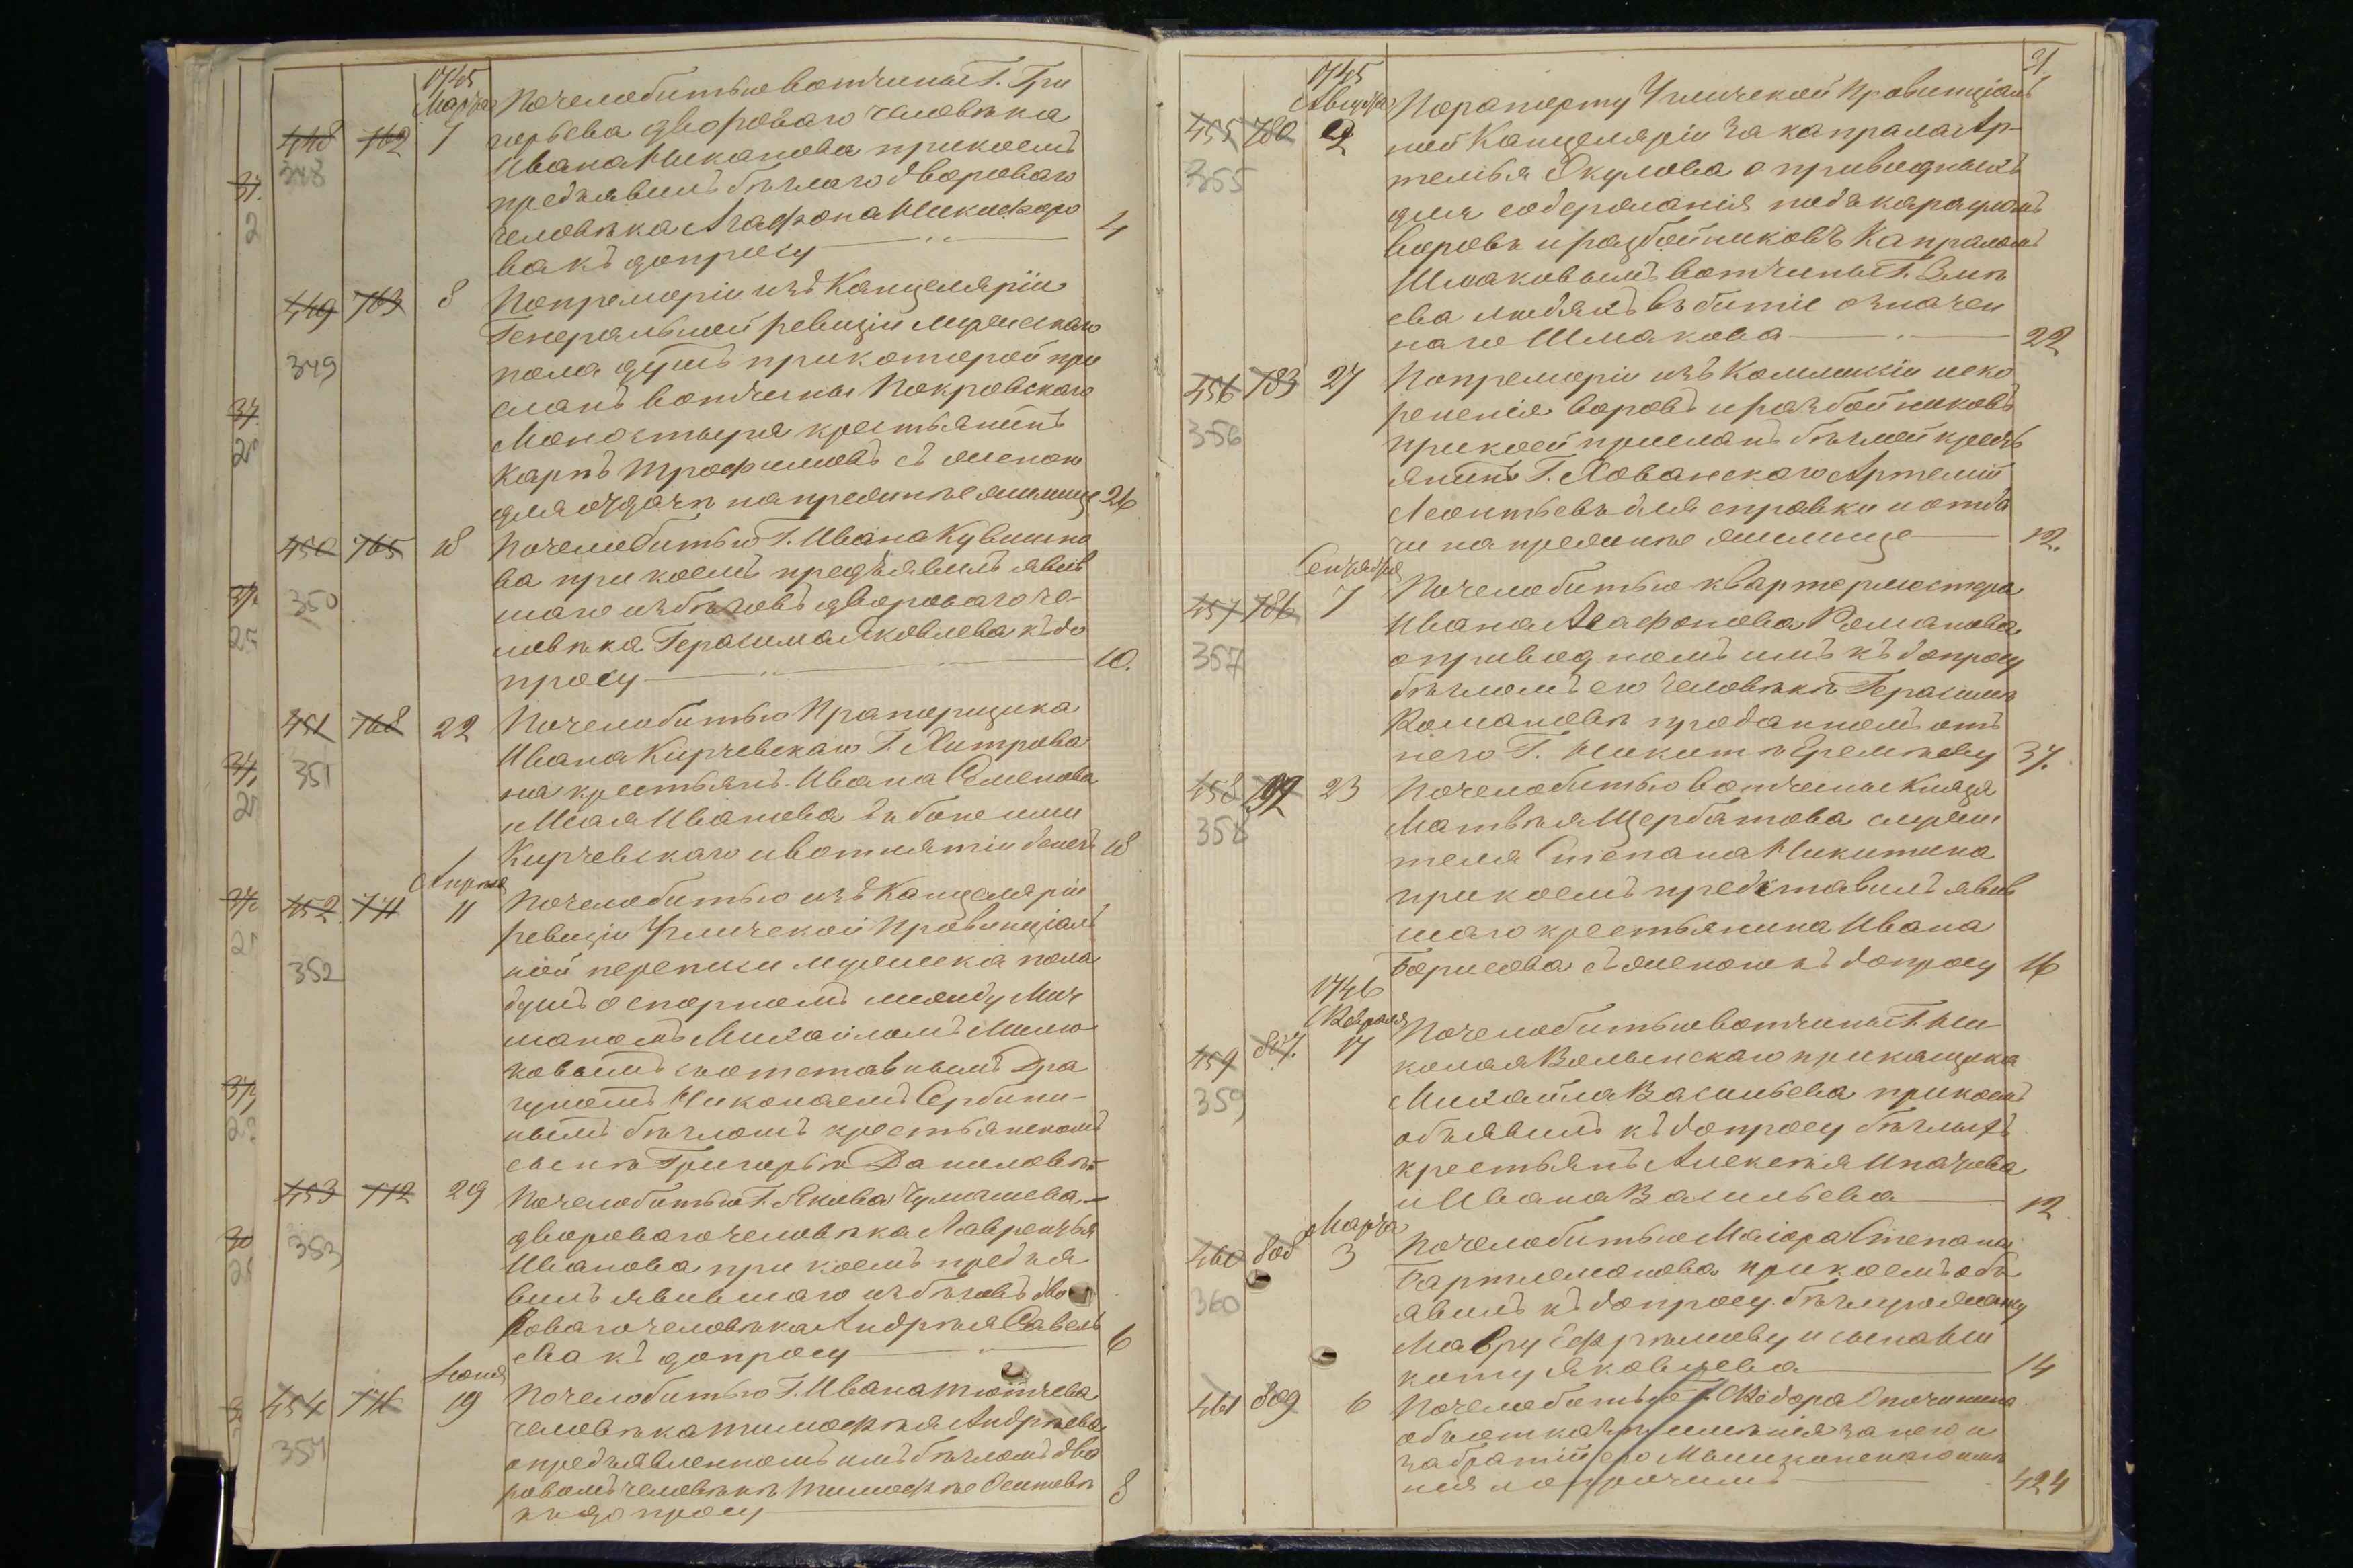 1745
Марта
448 762 7 По челобитью вотчины Г. Гри
348
горьева двороваго человѣка
Ивана Никанова при коемъ
предъявилъ бѣглаго двороваго
человѣка Агафона Никифоро
ва къ допросу 4
449 763 8 По промеморіи изъ Канцеляріи
Генеральной ревизіи мужескаго
349
пола душъ при которой при
сланъ вотчины Покровскаго
Монастыря крестьянинъ
Карпъ Трофимовъ съ женою
для отдачи на прежнее жилище 26
450 765 18 По челобитью Г. Ивана Кувшино
ва при коемъ предъявилъ явив
350
шаго изъ бѣговъ двороваго че-
ловѣка Герасима Яковлева къ до
просу 10.
451 768 22 По челобитью Прапорщика
Ивана Кирчевскаго Г. Хитрова
351
на крестьянъ Ивана Семенова
Иванова въ бое ими
Кирчевскаго и вотнятіи денегъ 18
Апрѣля
452 771 11 По челобитью изъ Канцеляріи
ревизіи Угличской Провинціаль
352
ной переписи мужеска пола
душъ о спорномъ между Мич
маномъ Михайломъ Милю
ковымъ и отставнымъ Дра
гуномъ Николаемъ Сербини-
нымъ бѣгломъ крестьянскомъ
сынѣ Григорьѣ Даниловѣ-
453 772 29 По челобитью Г. Якова
двороваго человѣка Лаврентья
353
Иванова при коемъ предъя
вилъ явившаго изъ бѣговъ дво
роваго человѣка Андрѣя Савель
ева къ допросу 6
Іюня
454 776 19 По челобитью Г. Ивана Тютчева
человѣка Тимофѣя Андрѣева
354
о предъявленномъ имъ бѣгломъ дво
ровомъ человѣкѣ Тимофѣе
къ допросу 8
31
1745
Августа
455 780 2 По рапорту Угличской Провинціаль
ной Канцеляріи за капрала Ар-
355
темья Окулова о приводныхъ
для содержанія подъ карауломъ
воровъ и разбойниковъ Капраломъ
Шмаковымъ вотчины Г.
ева людяхъ въ битіе означен
наго Шмакова 22
456 783 27 По промеморіи изъ Коммиссіи иско
рененія воровъ и разбойниковъ
356
при коей присланъ бѣглой кресть
янинъ Г. Хованскаго Артемій
Леонтьевъ для справки и отда
чи на прежнее жилище 12.
Сентября
457 786 7 По челобитью квартермистра
Ивана Агафонова Романова
357
о приводномъ имъ къ допросу
бѣгломъ его человѣкѣ Герасимѣ
Романовѣ проданномъ отъ
него Г. Никитѣ Еремѣеву 37.
458 797 23 По челобитью вотчины Князя
358
Матвѣя Щербатова служи
теля Степана Никитина
при коемъ представилъ явив
шаго крестьянина Ивана
Борисова съ женою къ допросу 16
1746
Февраля
459 807. 17 По челобитью вотчины Г. Ни
колая Волынскаго прикащика
359
Михайла Васильева при коемъ
объявилъ къ допросу бѣглыхъ
крестьянъ Алексѣя Игнатова
и Ивана Васильева 12
Марта
460 808 3 По челобитью Маіора Степана
Бартоломѣова при коемъ объ
360
явилъ къ допросу бѣглую женку
Мавру Ефремову и сына Ни
киту Яковлева 14
461 809 6 По челобитью Г. Ѳедора Опочинина
объ отказѣ имѣнія за нею и
забратіи его имѣ
нія и о прочемъ 424